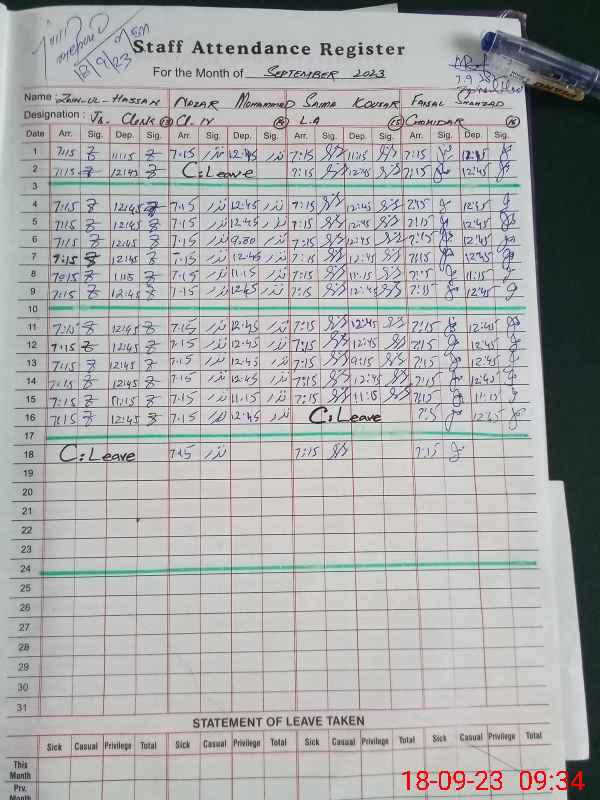 Staff Attendance Register
For the Month of SEPTEMBER 2023
Name ZAIN-UL-HASSAN NAZAR MOHAMMED SAIMA KOUSAR FAISAL SHAHZAD
Designation: Jr. Clerk Cl. IV L.A CHOKIDAR
Date Arr. Sig. Dep. Sig. Arr. Sig. Dep. Sig. Arr. Sig. Dep. Sig. Arr. Sig. Dep. Sig.
1 7:15 11:15 7.15 نذر 12:45 نذر 7:15 11:15 7:15 12:45
2 7:15 12:45 C:Leave 7:15 12:45 7:15 12:45
3
4 7:15 12:45 7.15 نذر 12:45 نذر 7:15 12:45 7:15 12:45
5 7:15 12:45 7.15 نذر 12:45 نذر 7:15 12:45 7:15 12:45
6 7:15 12:45 7.15 نذر نذر 7:15 12:45 7:15 12:45
7 7:15 12:45 7.15 نذر 12.45 نذر 7:15 12:45 7:15 12:45
8 7:15 7.15 نذر 11.15 نذر 7:15 11:15 7:15 11:15
9 7:15 12:45 7.15 نذر 12:45 نذر 7:15 12:45 7:15 12:45
10
11 7:15 12:45 7.15 نذر 12.45 نذر 7:15 12:45 7:15 12:45
12 7:15 12:45 7.15 نذر 12.45 نذر 7:15 12:45 7:15 12:45
13 7:15 12:45 7.15 نذر 12.45 نذر 7:15 9:15 7:15 12:45
14 7:15 12:45 7.15 نذر 12.45 نذر 7:15 12:45 7:15 12:45
15 7:15 11:15 7.15 نذر 11.15 نذر 7:15 11:15 7:15 11:15
16 7:15 12:45 7.15 نذر 12:45 نذر C:Leave 7:15 12:45
17
18 C:Leave 7:15 نذر 7:15 7:15
19
20
21
22
23
24
25
26
27
28
29
30
31
STATEMENT OF LEAVE TAKEN
Sick Casual Privilege Total Sick Casual Privilege Total Sick Casual Privilege Total Sick Casual Privilege Total
This Month
Prv. Month
18-09-23 09:34